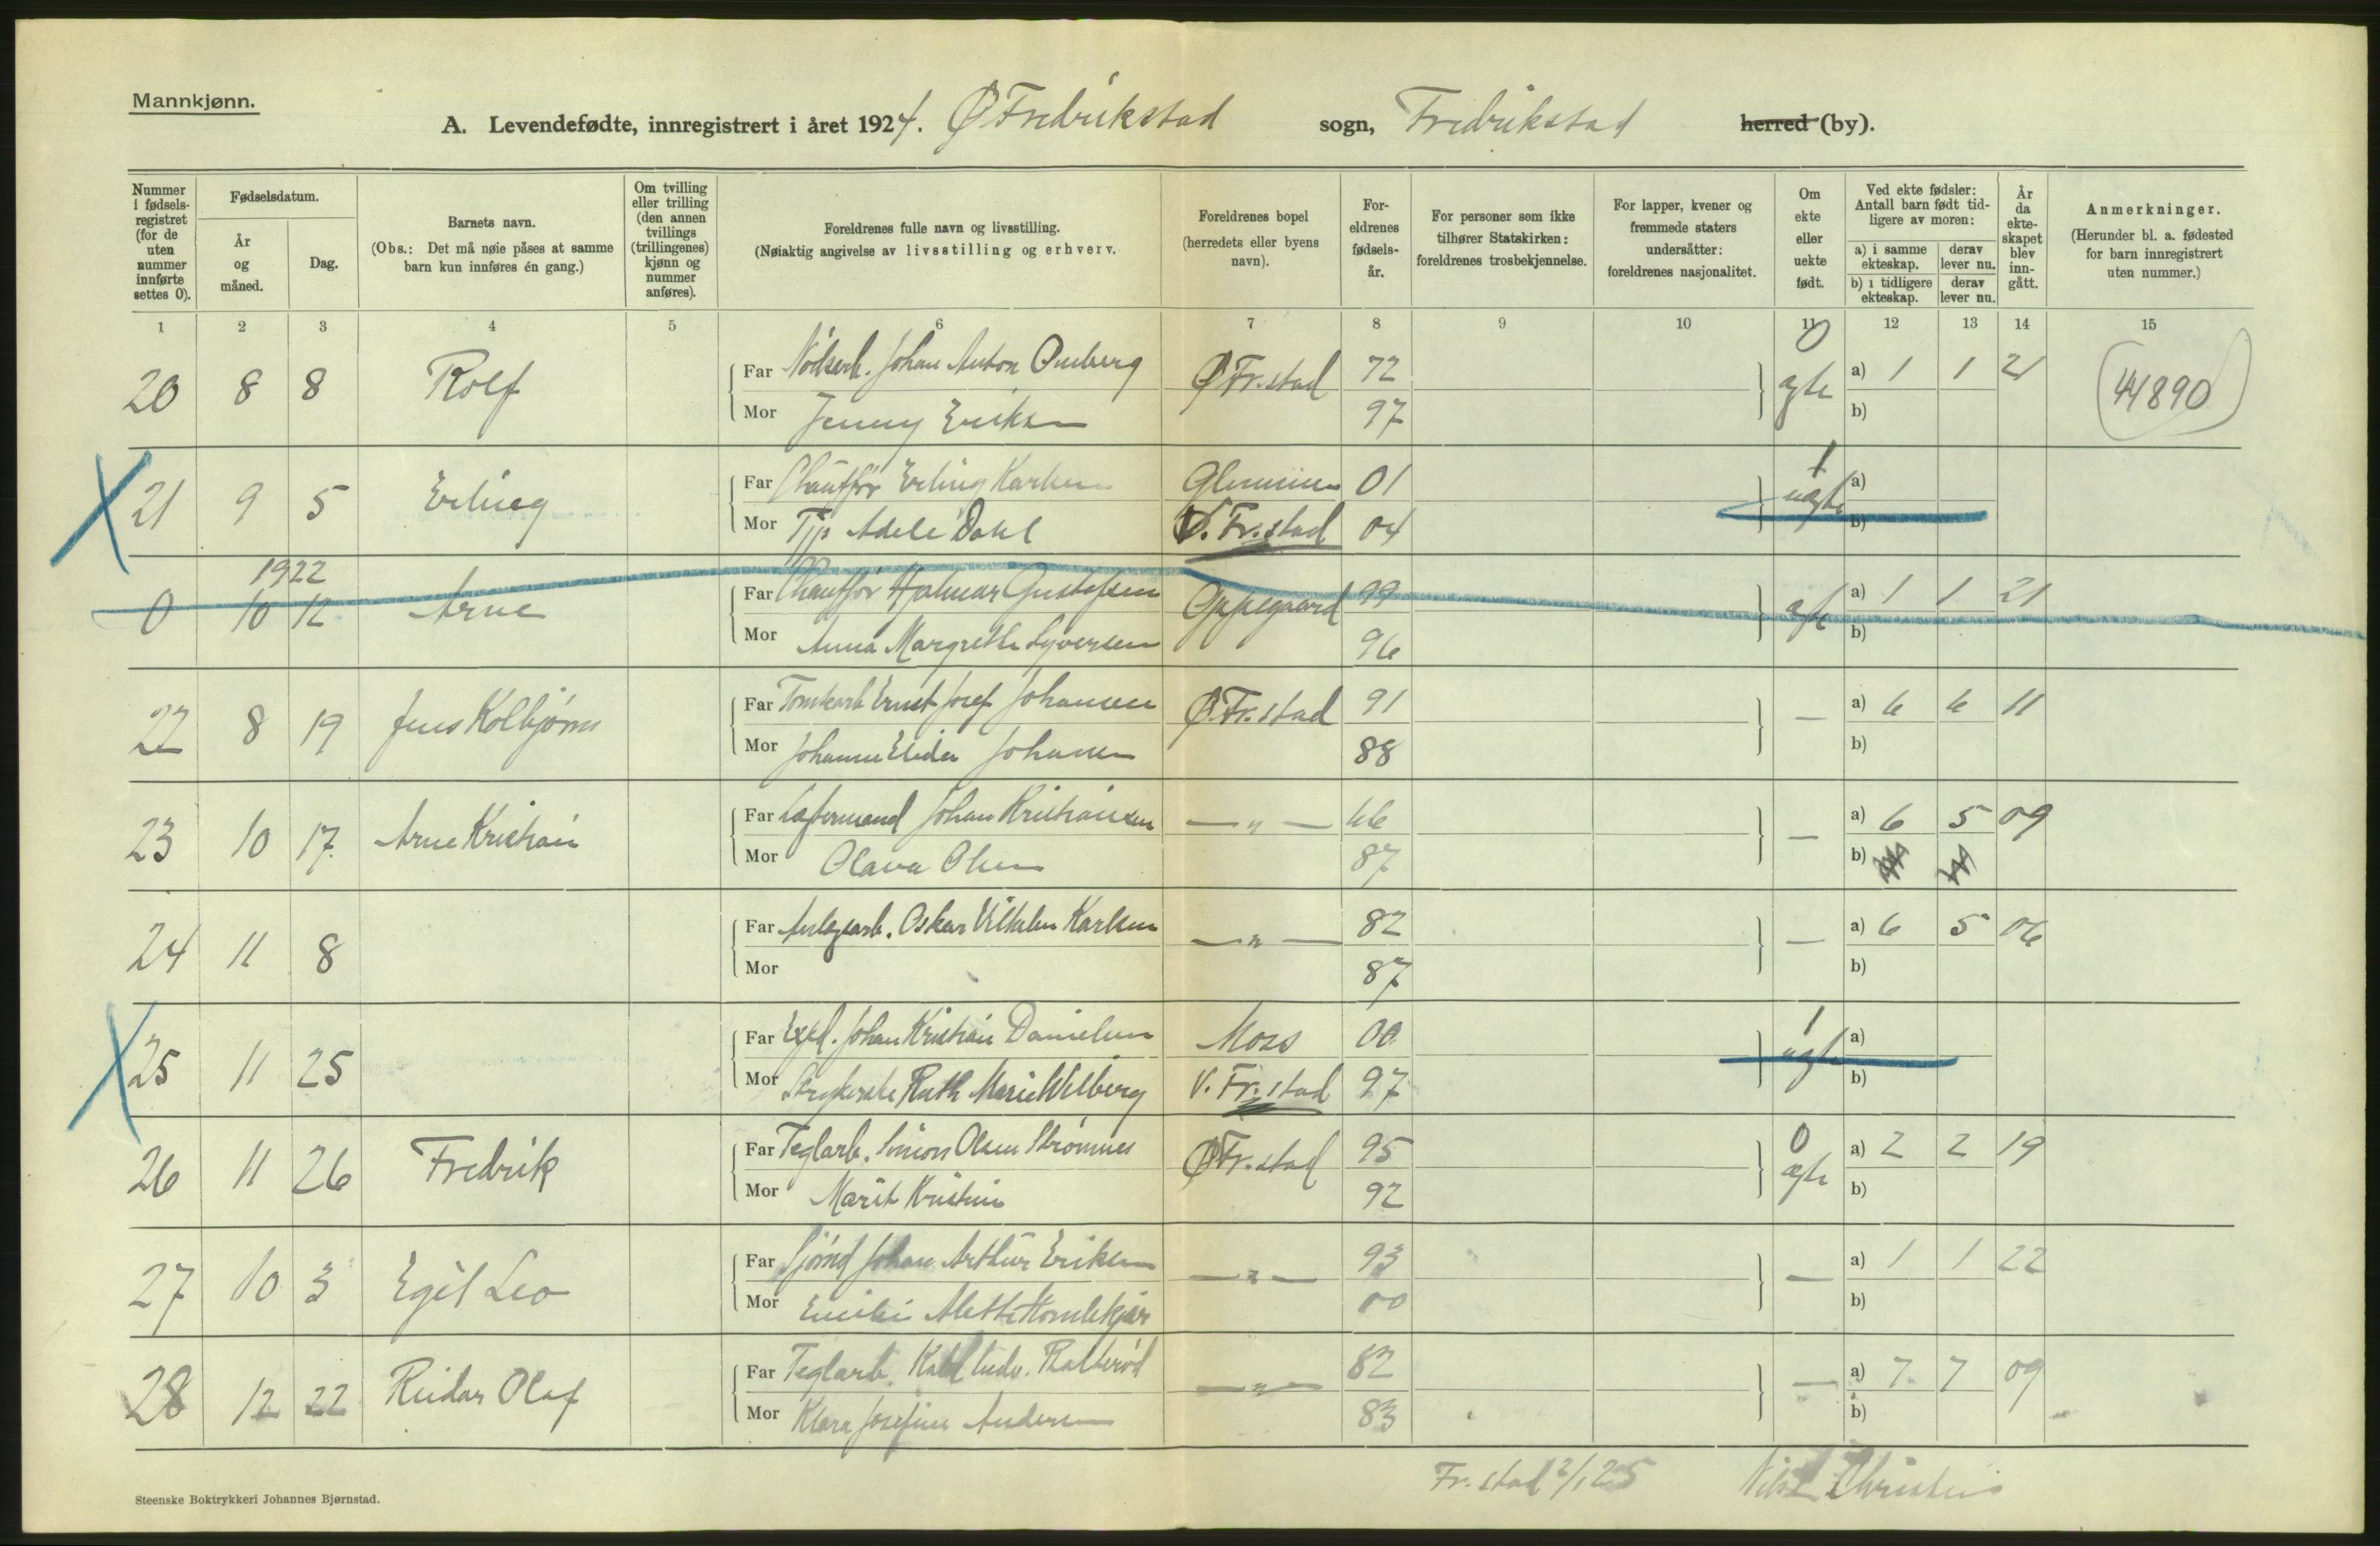 Mannkjønn.
A. Levendefødte, innregistrert i året 1924. Ø Fredrikstad sogn, Fredrikstad herred (by).
Nummer i fødsels-registret (for de uten nummer innførte settes 0).
Fødselsdatum.
År og måned.
Dag.
Barnets navn.
(Obs.: Det må nøie påses at samme barn kun innføres én gang.)
Om tvilling eller trilling (den annen tvillings (trillingenes) kjønn og nummer anføres).
Foreldrenes fulle navn og livsstilling.
(Nøiaktig angivelse av livsstilling og erhverv.
Foreldrenes bopel (herredets eller byens navn).
For-eldrenes fødsels-år.
For personer som ikke tilhører Statskirken: foreldrenes trosbekjennelse.
For lapper, kvener og fremmede staters undersåtter: foreldrenes nasjonalitet.
Om ekte eller uekte født.
Ved ekte fødsler: Antall barn født tid-ligere av moren:
a) i samme ekteskap.
derav lever nu.
b) i tidligere ekteskap.
derav lever nu.
År da ekte-skapet blev inn-gått.
Anmerkninger.
(Herunder bl. a. fødested for barn innregistrert uten nummer.)
1 2 3 4 5 6 7 8 9 10 11 12 13 14 15
20 8 8 Rolf Far Johan Anton Ø Fr.stad 72 0 ægte a) 1 1 21 44890
Mor Jenny Eriksen 97 b)
21 9 5 Erling Far Chauffør Erling Karlsen Glemmen 01 1 uægte a)
Mor Tjp Adele Dahl V. Fr.stad 04 b)
1922
0 10 12 Arne Far Chauffør Hjalmar Gustafsen Oppegaard 99 ægte a) 1 1 21
Mor Anna Margrethe Syversen 96 b)
22 8 19 Jens Kolbjørn Far Ernst Josef Johansen Ø.Fr.stad 91 — a) 6 6 11
Mor Johanne Elida Johansen 88 b)
23 10 17. Arne Kristian Far Johan Kristiansen — " — 66 — a) 6 5 09
Mor Olava Olsen 87 b)
24 11 8 Far Oskar Vilhelm Karlsen — " — 82 — a) 6 5 06
Mor 87 b)
25 11 25 Far Exp. Johan Kristian Danielsen Moss 00 1 uægte a)
Mor Ruth Marie Wilberg V. Fr.stad 97 b)
26 11 26 Fredrik Far Teglarb. Simon Olsen Strømnes Ø Fr.stad 95 0 ægte a) 2 2 19
Mor Marit Kristine 92 b)
27 10 3 Egil Leo Far Sjømd Johan Arthur Eriksen — " — 93 — a) 1 1 22
Mor Emilie Alette 00 b)
28 12 22 Reidar Olaf Far Teglarb. Ludv. — " — 82 — a) 7 7 09
Mor Klara Josefine Andersen 83 b)
Fr.stad 2/1 25
Steenske Boktrykkeri Johannes Bjørnstad.